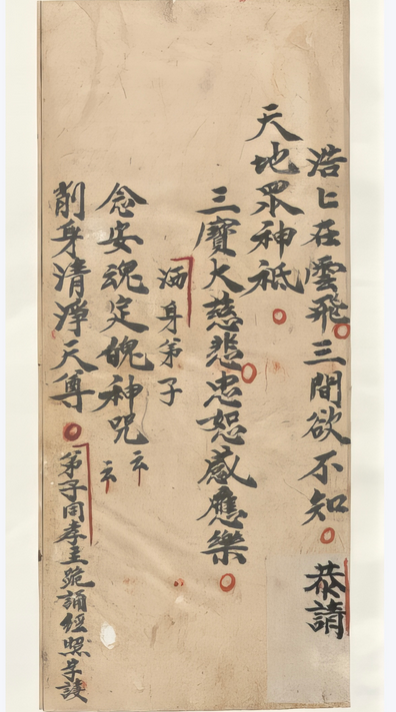 浩〻在雲飛三間欲不知
恭請
天地眾神祇
三寶大慈悲忠恕感應樂
洒身弟子
念安魂定魄神咒
云云
削身清淨天尊
弟子同孝主跪誦經照字讀